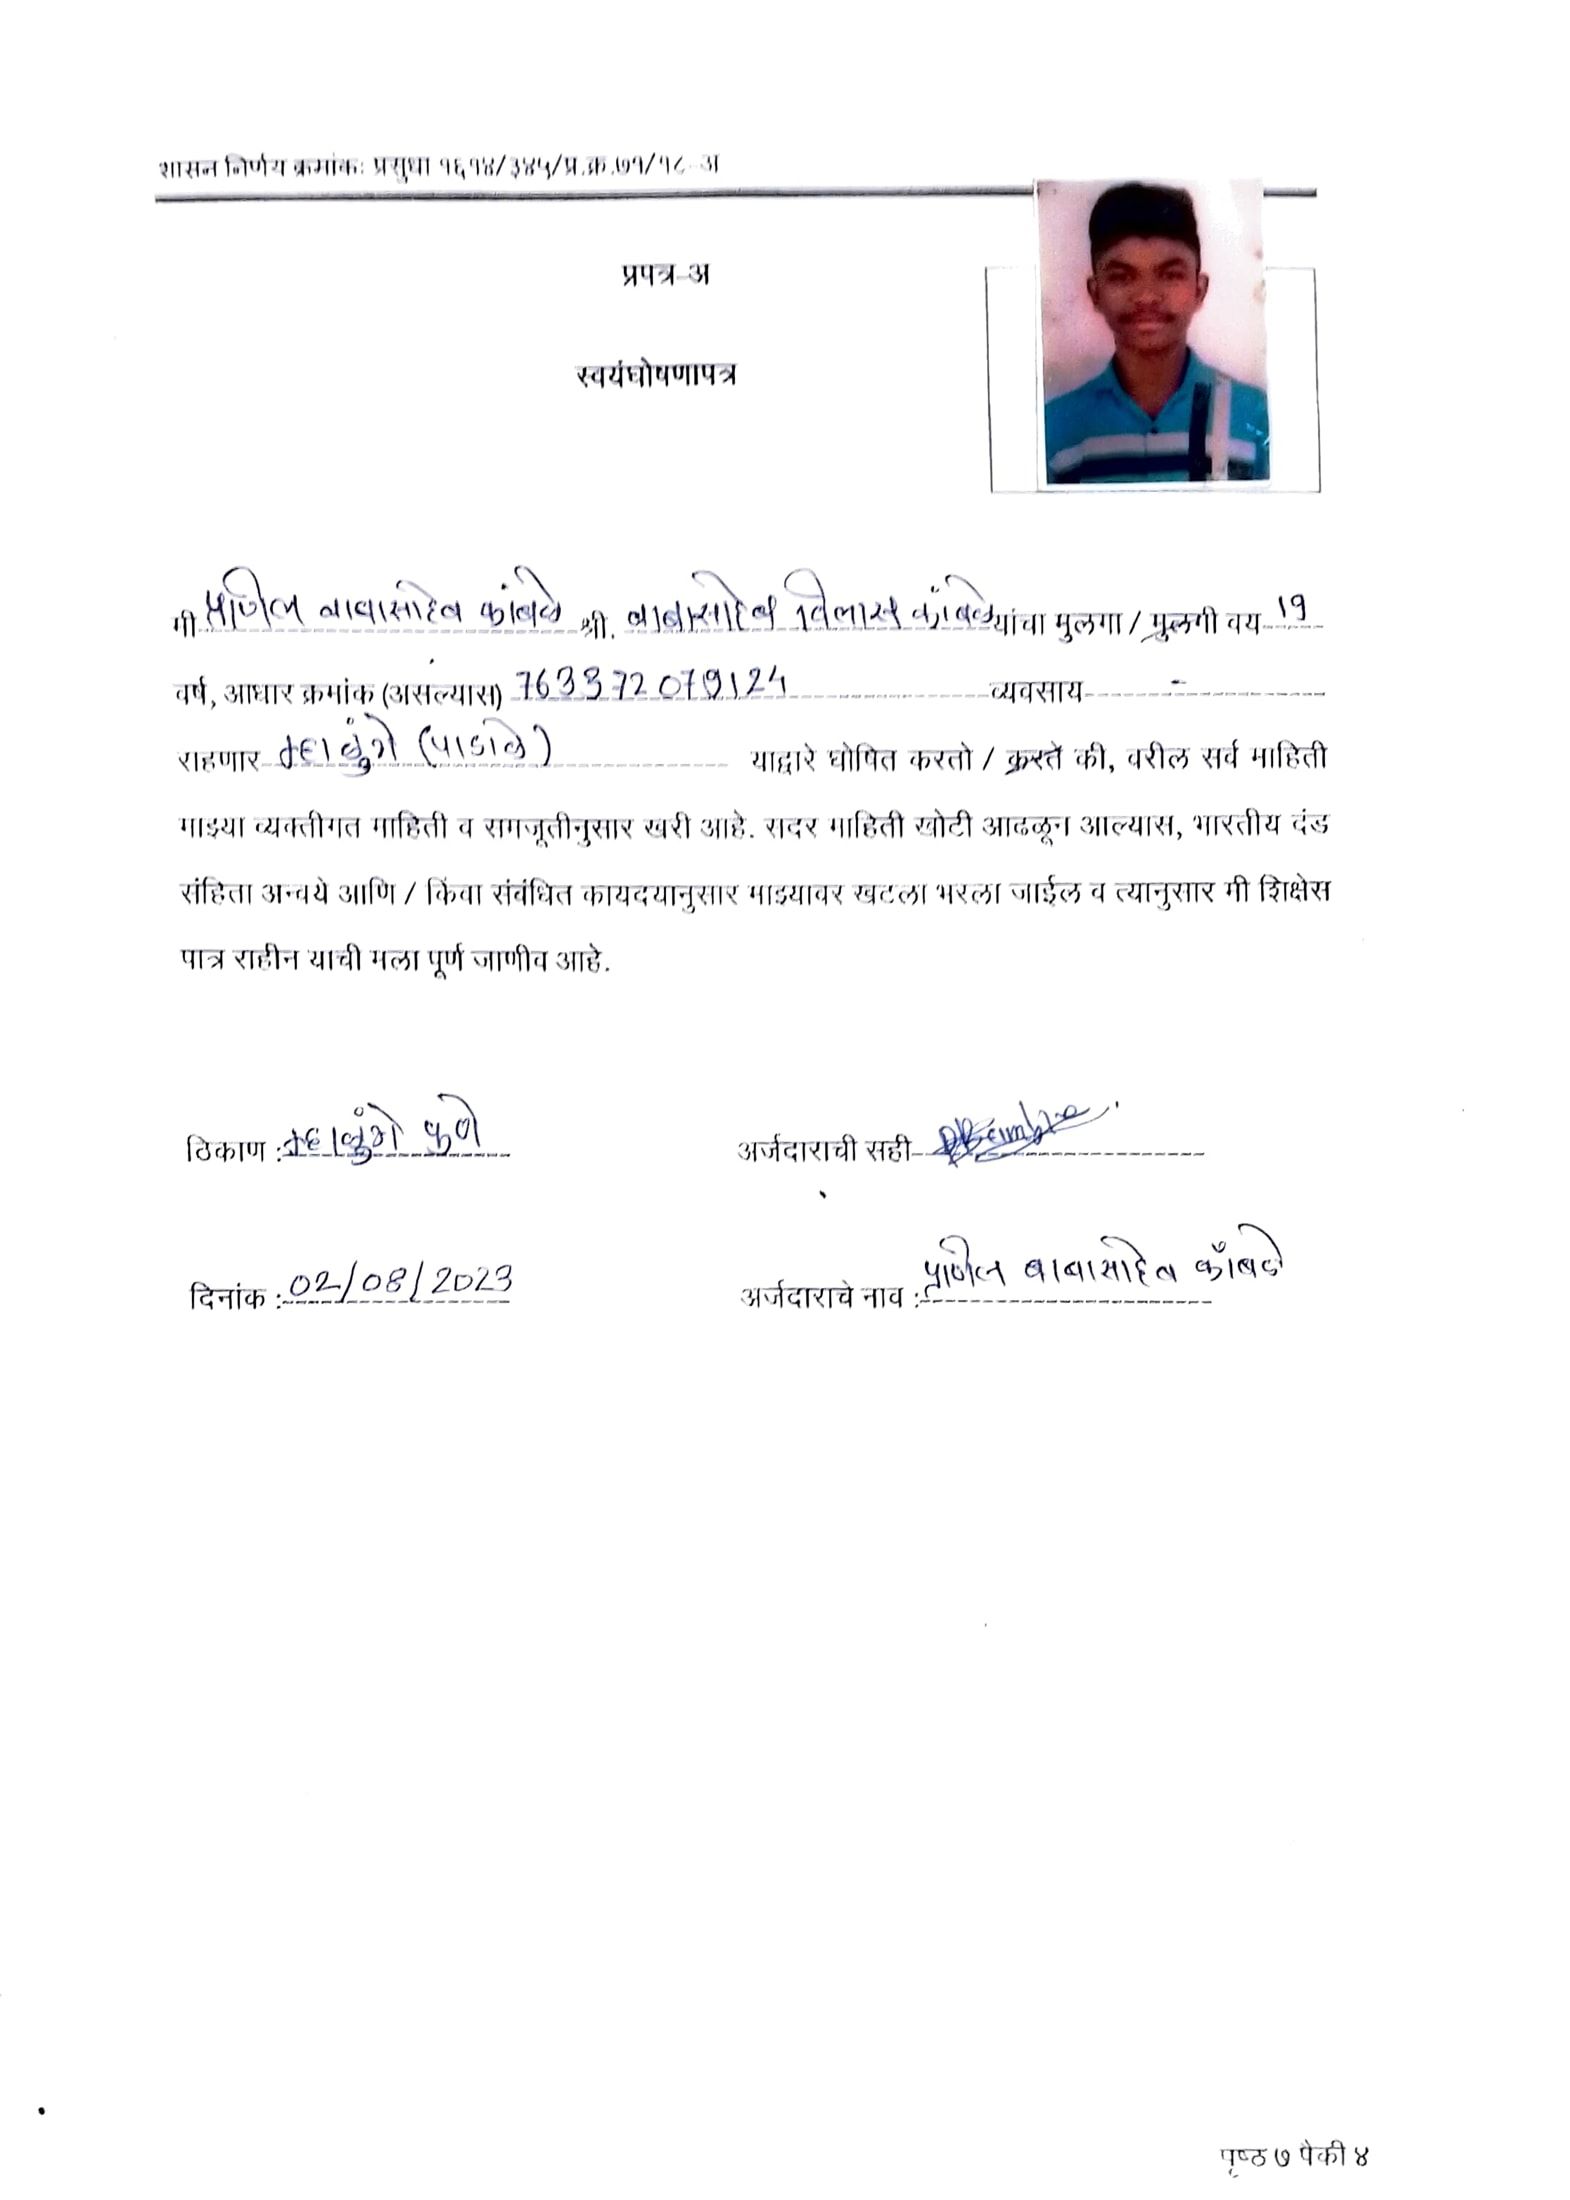 शासन निर्णय क्रमांकः प्रसुधा १६१४/३४५/प्र.क्र.७१/१८-अ
प्रपत्र-अ
स्वयंघोषणापत्र
मी प्रणिल बाबासाहेब कांबळे श्री. बाबासाहेब विलास कांबळे यांचा मुलगा / मुलगी वय 19
वर्ष, आधार क्रमांक (असल्यास) 763372079124 व्यवसाय -
राहणार म्हाळुंगे (पाडाळे) याद्वारे घोषित करतो / करते की, वरील सर्व माहिती
माझ्या व्यक्तीगत माहिती व समजूतीनुसार खरी आहे. सदर माहिती खोटी आढळून आल्यास, भारतीय दंड
संहिता अन्वये आणि / किंवा संबंधित कायदयानुसार माझ्यावर खटला भरला जाईल व त्यानुसार मी शिक्षेस
पात्र राहीन याची मला पूर्ण जाणीव आहे.
ठिकाण : म्हाळुंगे पुणे अर्जदाराची सही
दिनांक : 02/08/2023 अर्जदाराचे नाव : प्रणिल बाबासाहेब कांबळे
पृष्ठ ७ पैकी ४